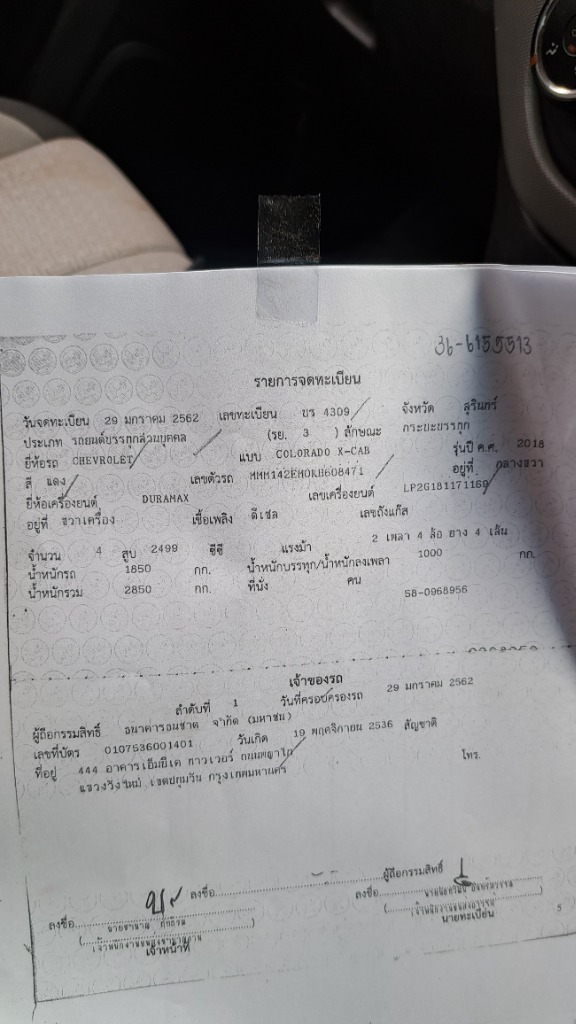 36-6155513
รายการจดทะเบียน
วันจดทะเบียน 29 มกราคม 2562 เลขทะเบียน บร 4309 จังหวัด สุรินทร์
ประเภท รถยนต์บรรทุกส่วนบุคคล (รย. 3 ) ลักษณะ กระบะบรรทุก
ยี่ห้อรถ CHEVROLET แบบ COLORADO X-CAB รุ่นปี ค.ศ. 2018
สี แดง เลขตัวรถ MMM142EM0KH608471 อยู่ที่ กลางขวา
ยี่ห้อเครื่องยนต์ DURAMAX เลขเครื่องยนต์ LP2G181171169
อยู่ที่ ขวาเครื่อง เชื้อเพลิง ดีเซล เลขถังแก๊ส
จำนวน 4 สูบ 2499 ซีซี แรงม้า 2 เพลา 4 ล้อ ยาง 4 เส้น
น้ำหนักรถ 1850 กก. น้ำหนักบรรทุก/น้ำหนักลงเพลา 1000 กก.
น้ำหนักรวม 2850 กก. ที่นั่ง คน
58-0968956
เจ้าของรถ
ลำดับที่ 1 วันที่ครอบครองรถ 29 มกราคม 2562
ผู้ถือกรรมสิทธิ์ ธนาคารธนชาต จำกัด (มหาชน)
เลขที่บัตร 0107536001401 วันเกิด 19 พฤศจิกายน 2536 สัญชาติ
ที่อยู่ 444 อาคารเอ็มบีเค ทาวเวอร์ ถนนพญาไท โทร.
แขวงวังใหม่ เขตปทุมวัน กรุงเทพมหานคร
ผู้ถือกรรมสิทธิ์
ลงชื่อ ลงชื่อ ลงชื่อ
เจ้าหน้าที่ นายทะเบียน
5